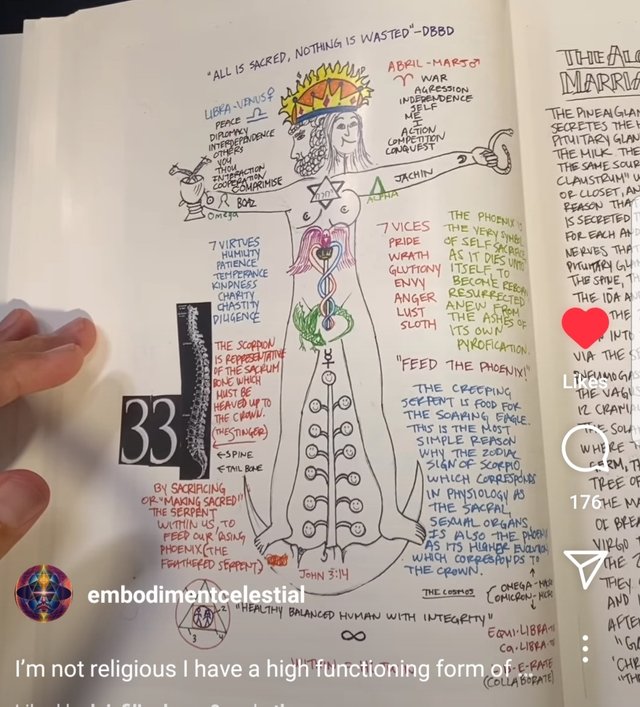 "ALL IS SACRED, NOTHING IS WASTED"-DBBD
LIBRA-VENUS♀
PEACE ♎
DIPLOMACY
INTERDEPENDENCE
OTHERS
YOU
THOU
INTERACTION
COOPERATION
COMPARIMISE
BOAZ
Omega
ABRIL-MARS♂
♈ WAR
AGRESSION
INDEPENDENCE
SELF
ME
I
ACTION
COMPETITION
CONQUEST
JACHIN
ALPHA
7 VIRTUES
HUMILITY
PATIENCE
TEMPERANCE
KINDNESS
CHARITY
CHASTITY
DILIGENCE
7 VICES
PRIDE
WRATH
GLUTTONY
ENVY
ANGER
LUST
SLOTH
THE PHOENIX IS
THE VERY SYMBOL
OF SELF SACRIFICE
AS IT DIES UNTO
ITSELF, TO
BECOME REBORN
RESURRECTED
IN & FROM
THE ASHES OF
ITS OWN
PYROFICATION.
THE SCORPION
IS REPRESENTATIVE
OF THE SACRUM
BONE WHICH
MUST BE
HEAVED UP TO
THE CROWN.
(THE STINGER)
←SPINE
←TAIL BONE
33
"FEED THE PHOENIX!"
THE CREEPING
SERPENT IS FOOD FOR
THE SOARING EAGLE.
THIS IS THE MOST
SIMPLE REASON
WHY THE ZODIAC
SIGN OF SCORPIO,
WHICH CORRESPONDS
IN PHYSIOLOGY AS
THE SACRAL,
SEXUAL ORGANS,
IS ALSO THE PHOENIX
AS ITS HIGHER EVOLUTION
WHICH CORRESPONDS TO
THE CROWN.
BY SACRIFICING
OR "MAKING SACRED"
THE SERPENT
WITHIN US, TO
FEED OUR RISING
PHOENIX (THE
FEATHERED SERPENT)
JOHN 3:14
THE COSMOS
OMEGA-
OMICRON-
"HEALTHY BALANCED HUMAN WITH INTEGRITY"
∞
1
2
3
EQUI-LIBRA-
CO-LIBRA-
-E-RATE
(COLLABORATE)
THE
MARRIA
THE PINEAL GLAN
SECRETES THE
PITUITARY GLAN
THE MILK. THE
THE SAME SOUR
CLAUSTRUM"
OR CLOSET, AN
REASON THA
IS SECRETED
FOR EACH AND
NERVES THA
PITUITARY GLA
THE SPINE, T
THE IDA AN
THE
INTO
VIA THE SE
THE VAGU
12 CRANI
THE SOLA
WHERE T
TREE OF
THE M
OF BRE
VIRGO
THEY
AND
AFTE
Likes
176
embodimentcelestial
I'm not religious I have a high functioning form of ...